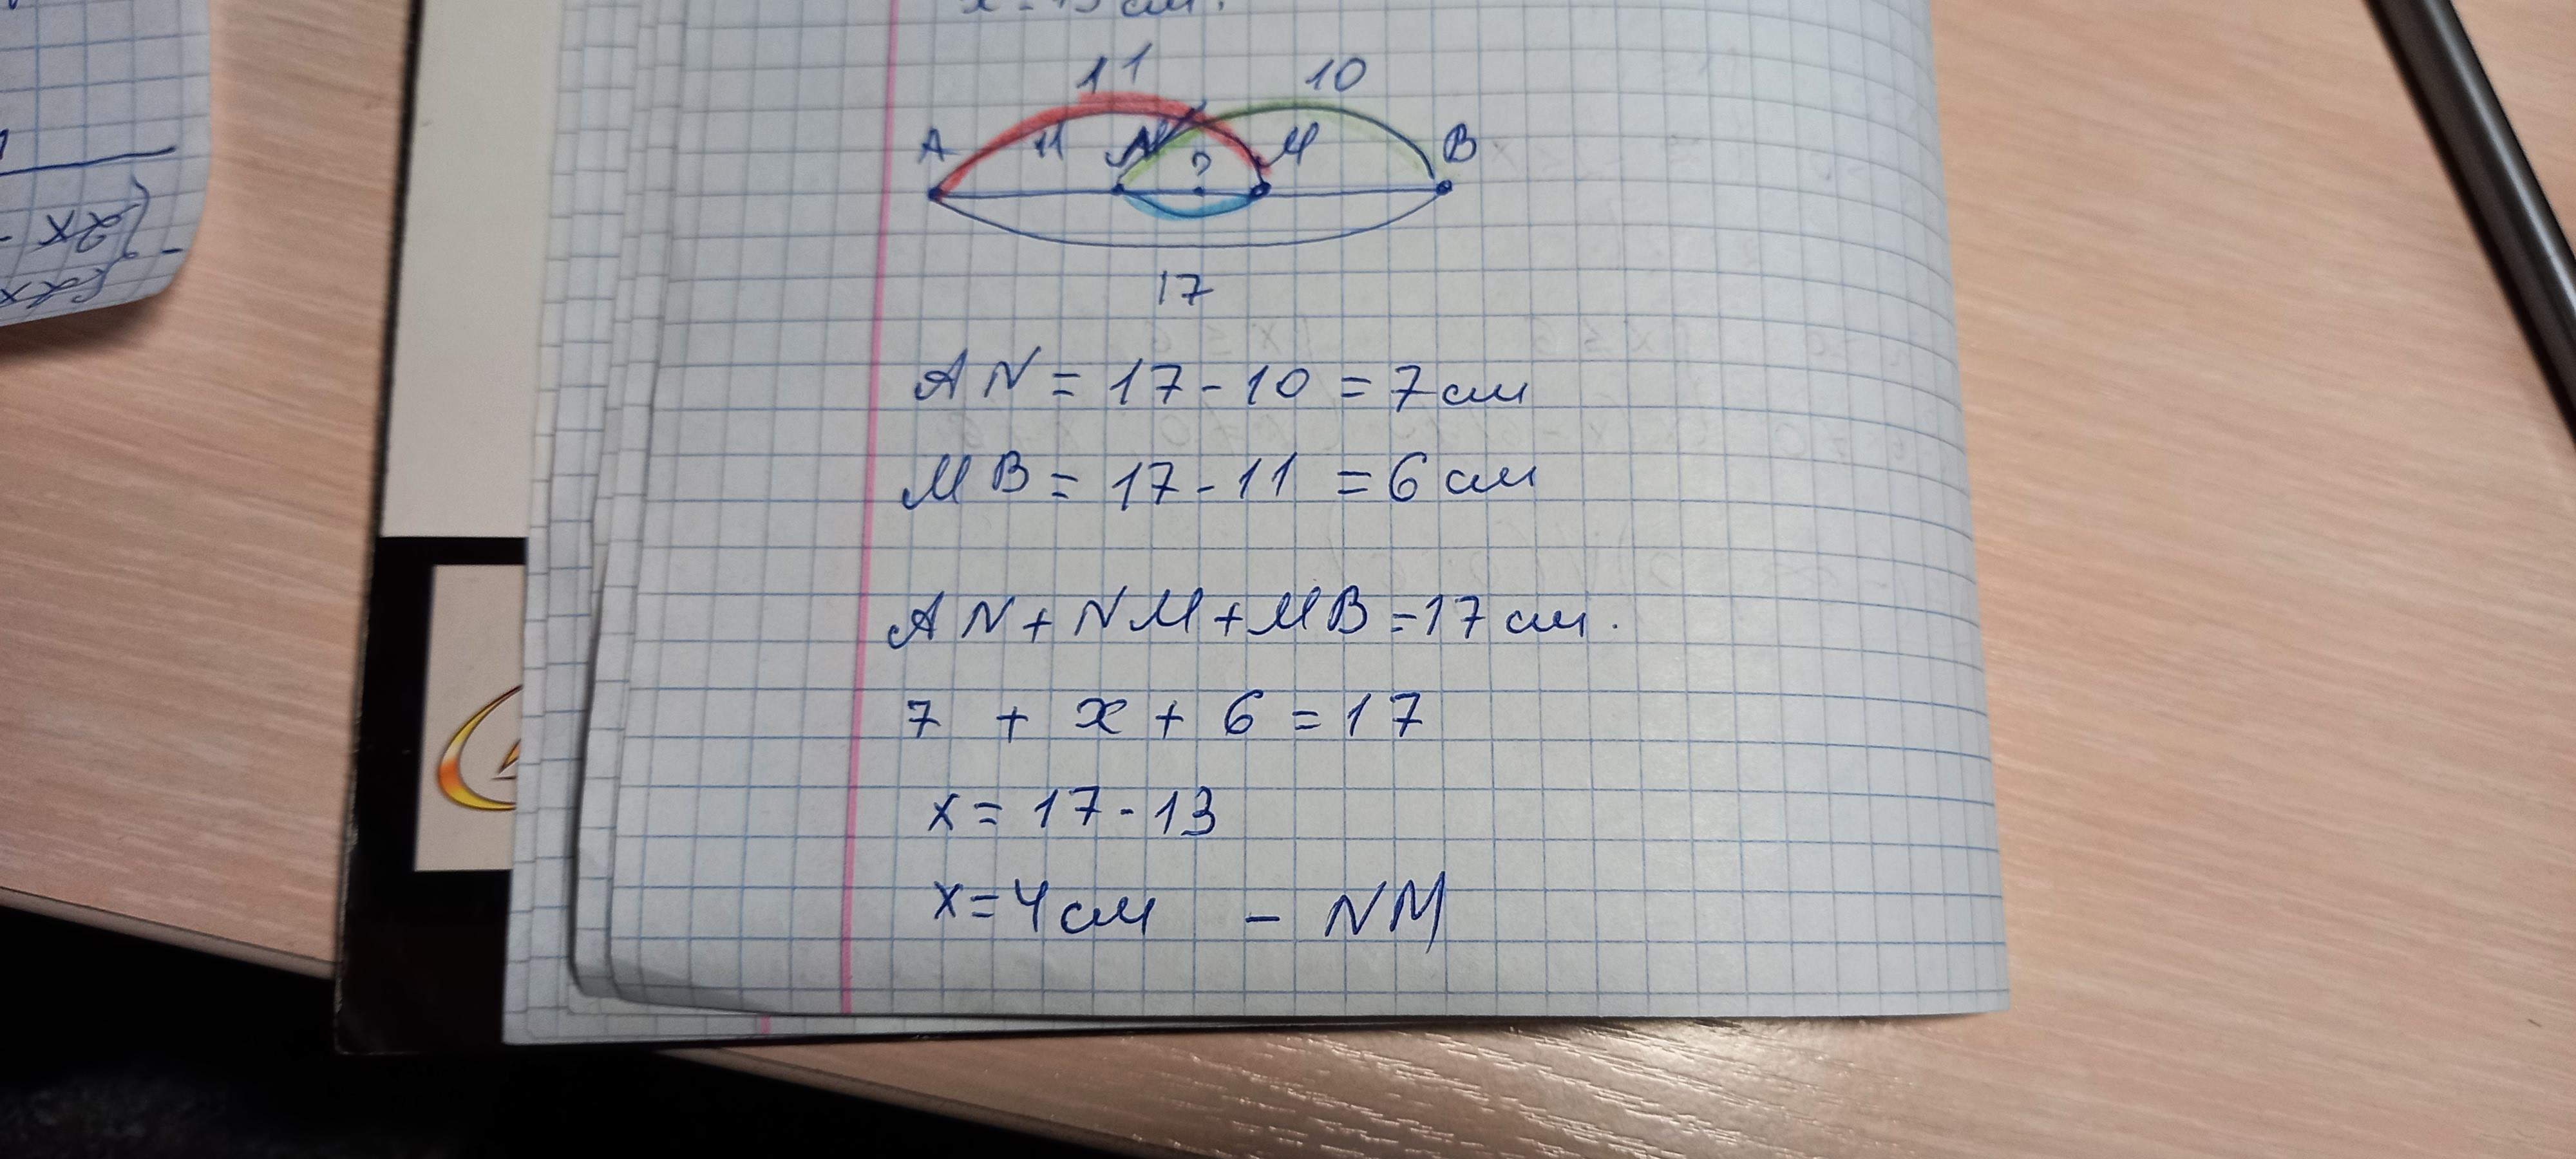 11 10
A 11 N ? M B
17
AN = 17 - 10 = 7 см
MB = 17 - 11 = 6 см
AN + NM + MB = 17 см.
7 + x + 6 = 17
x = 17 - 13
x = 4 см - NM
2x -